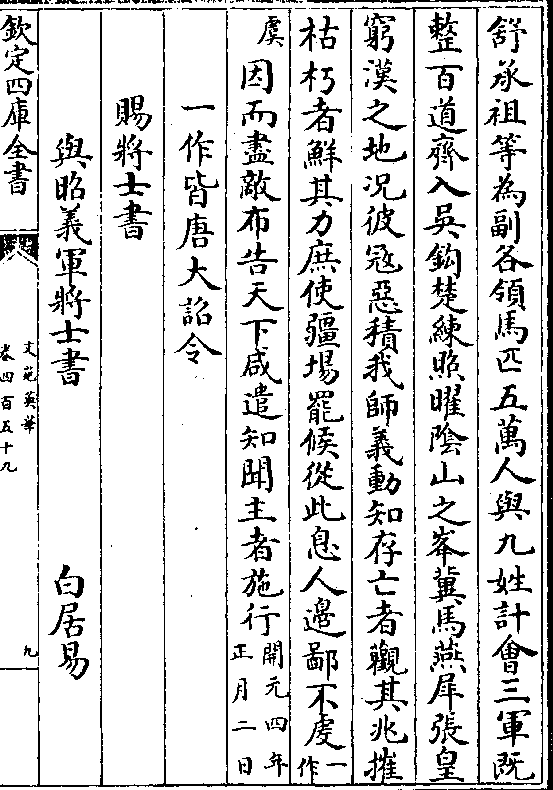 舒承祖等為副各領馬匹五萬人與九姓計會三軍既
整百道齊入吳鈎楚練照曜陰山之峯冀馬燕犀張皇
窮漠之地况彼冦惡積我師義動知存亡者觀其兆摧
枯朽者鮮其力庶使疆埸罷候從此息人邊鄙不䖍一作
虞因而盡敵布告天下咸遣知聞主者施行開元四年正月二日
一作皆唐大詔令
賜將士書
與昭義軍將士書 白居易
欽定四庫全書
文苑英華
卷四百五十九
九